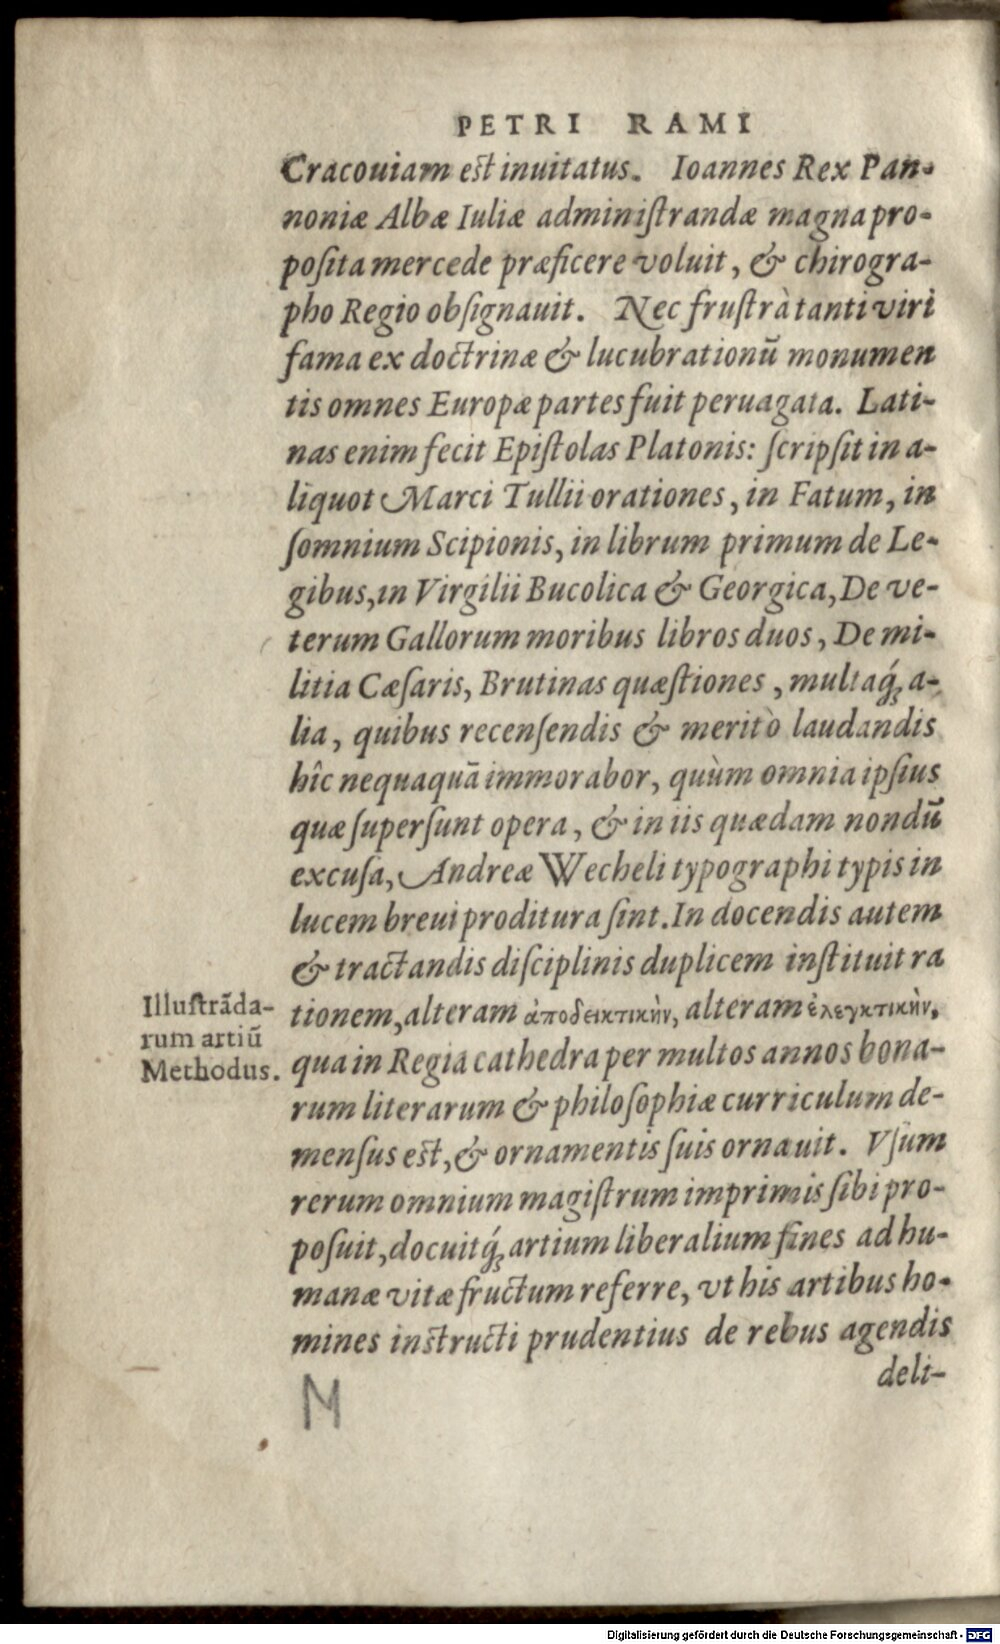 PETRI RAMI
Cracouiam est inuitatus. Ioannes Rex Pan-
noniæ Albæ Iuliæ adminiſtrandæ magna pro-
poſita mercede præficere voluit, & chirogra-
pho Regio obſignauit. Nec fruſtrà tanti viri
fama ex doctrinæ & lucubrationū monumen
tis omnes Europæ partes fuit peruagata. Lati-
nas enim fecit Epiſtolas Platonis: ſcripſit in a-
liquot Marci Tullii orationes, in Fatum, in
ſomnium Scipionis, in librum primum de Le-
gibus, in Virgilii Bucolica & Georgica, De ve-
terum Gallorum moribus libros duos, De mi-
litia Cæſaris, Brutinas quæſtiones, multaq́ꝫ a-
lia, quibus recenſendis & meritò laudandis
hîc nequaquā immorabor, quùm omnia ipſius
quæ ſuperſunt opera, & in iis quædam nondū
excuſa, Andreæ Wecheli typographi typis in
lucem breui proditura ſint. In docendis autem
& tractandis diſciplinis duplicem inſtituit ra
Illuſtrāda-
rum artiū
Methodus.
tionem, alteram ἀποδεικτικὴν, alteram ἐλεγκτικὴν,
qua in Regia cathedra per multos annos bona-
rum literarum & philoſophiæ curriculum de-
menſus est, & ornamentis ſuis ornauit. Vſum
rerum omnium magiſtrum imprimis ſibi pro-
poſuit, docuitq́ꝫ artium liberalium fines ad hu-
manæ vitæ fructum referre, vt his artibus ho-
mines instructi prudentius de rebus agendis
deli-
M
Digitalisierung gefördert durch die Deutsche Forschungsgemeinschaft - DFG